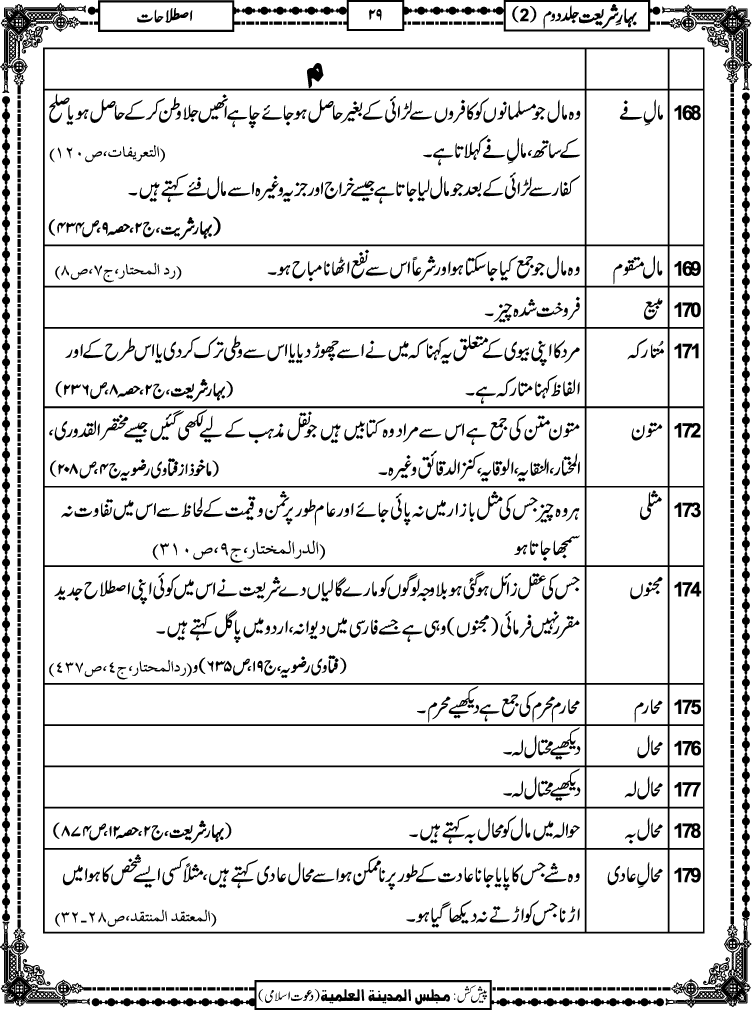 بہارِ شریعت جلد دوم (2)
۲۹
اصطلاحات
م
168 مالِ فے وہ مال جو مسلمانوں کو کافروں سے لڑائی کے بغیر حاصل ہو جائے چاہے انھیں جلا وطن کرکے حاصل ہو یا صلح
کے ساتھ، مالِ فے کہلاتا ہے۔ (التعریفات،ص۱۲۰)
کفار سے لڑائی کے بعد جو مال لیا جاتا ہے جیسے خراج اور جزیہ وغیرہ اسے مال فئے کہتے ہیں۔
(بہار شریت، ج۲، حصہ ۹، ص۴۳۴)
169 مال متقوم وہ مال جو جمع کیا جاسکتا ہو اور شرعاً اس سے نفع اٹھانا مباح ہو۔ (رد المحتار،ج۷،ص۸)
170 مبیع فروخت شدہ چیز۔
171 مُتارکہ مرد کا اپنی بیوی کے متعلق یہ کہنا کہ میں نے اسے چھوڑ دیا یا اس سے وطی ترک کردی یا اس طرح کے اور
الفاظ کہنا متارکہ ہے۔ (بہار شریعت، ج۲، حصہ ۸، ص۲۳۶)
172 متون متون متن کی جمع ہے اس سے مراد وہ کتابیں ہیں جو نقل مذہب کے لیے لکھی گئیں جیسے مختصر القدوری،
المختار، النقایہ، الوقایہ، کنز الدقائق وغیرہ۔ (ماخوذ از فتاوی رضویہ ج۴، ص۲۰۸)
173 مثلی ہر وہ چیز جس کی مثل بازار میں نہ پائی جائے اور عام طور پر ثمن و قیمت کے لحاظ سے اس میں تفاوت نہ
سمجھا جاتا ہو (الدرالمختار،ج۹،ص۳۱۰)
174 مجنوں جس کی عقل زائل ہوگئی ہو بلا وجہ لوگوں کو مارے گالیاں دے شریعت نے اس میں کوئی اپنی اصطلاح جدید
مقرر نہیں فرمائی (مجنوں) وہی ہے جسے فارسی میں دیوانہ، اردو میں پاگل کہتے ہیں۔
(فتاوی رضویہ، ج۱۹، ص۶۳۵) و (ردالمحتار،ج٤،ص٤٣٧)
175 محارم محارم محرم کی جمع ہے دیکھیے محرم۔
176 محال دیکھیے محتال لہ۔
177 محال لہ دیکھیے محتال لہ۔
178 محال بہ حوالہ میں مال کو محال بہ کہتے ہیں۔ (بہار شریعت، ج۲، حصہ ۱۲، ص۸۷۴)
179 محالِ عادی وہ شے جس کا پایا جانا عادت کے طور پر ناممکن ہو اسے محال عادی کہتے ہیں، مثلاً کسی ایسے شخص کا ہوا میں
اڑنا جس کو اڑتے نہ دیکھا گیا ہو۔ (المعتقد المنتقد،ص۲۸۔۳۲)
پیش کش: مجلس المدینة العلمیة (دعوت اسلامی)